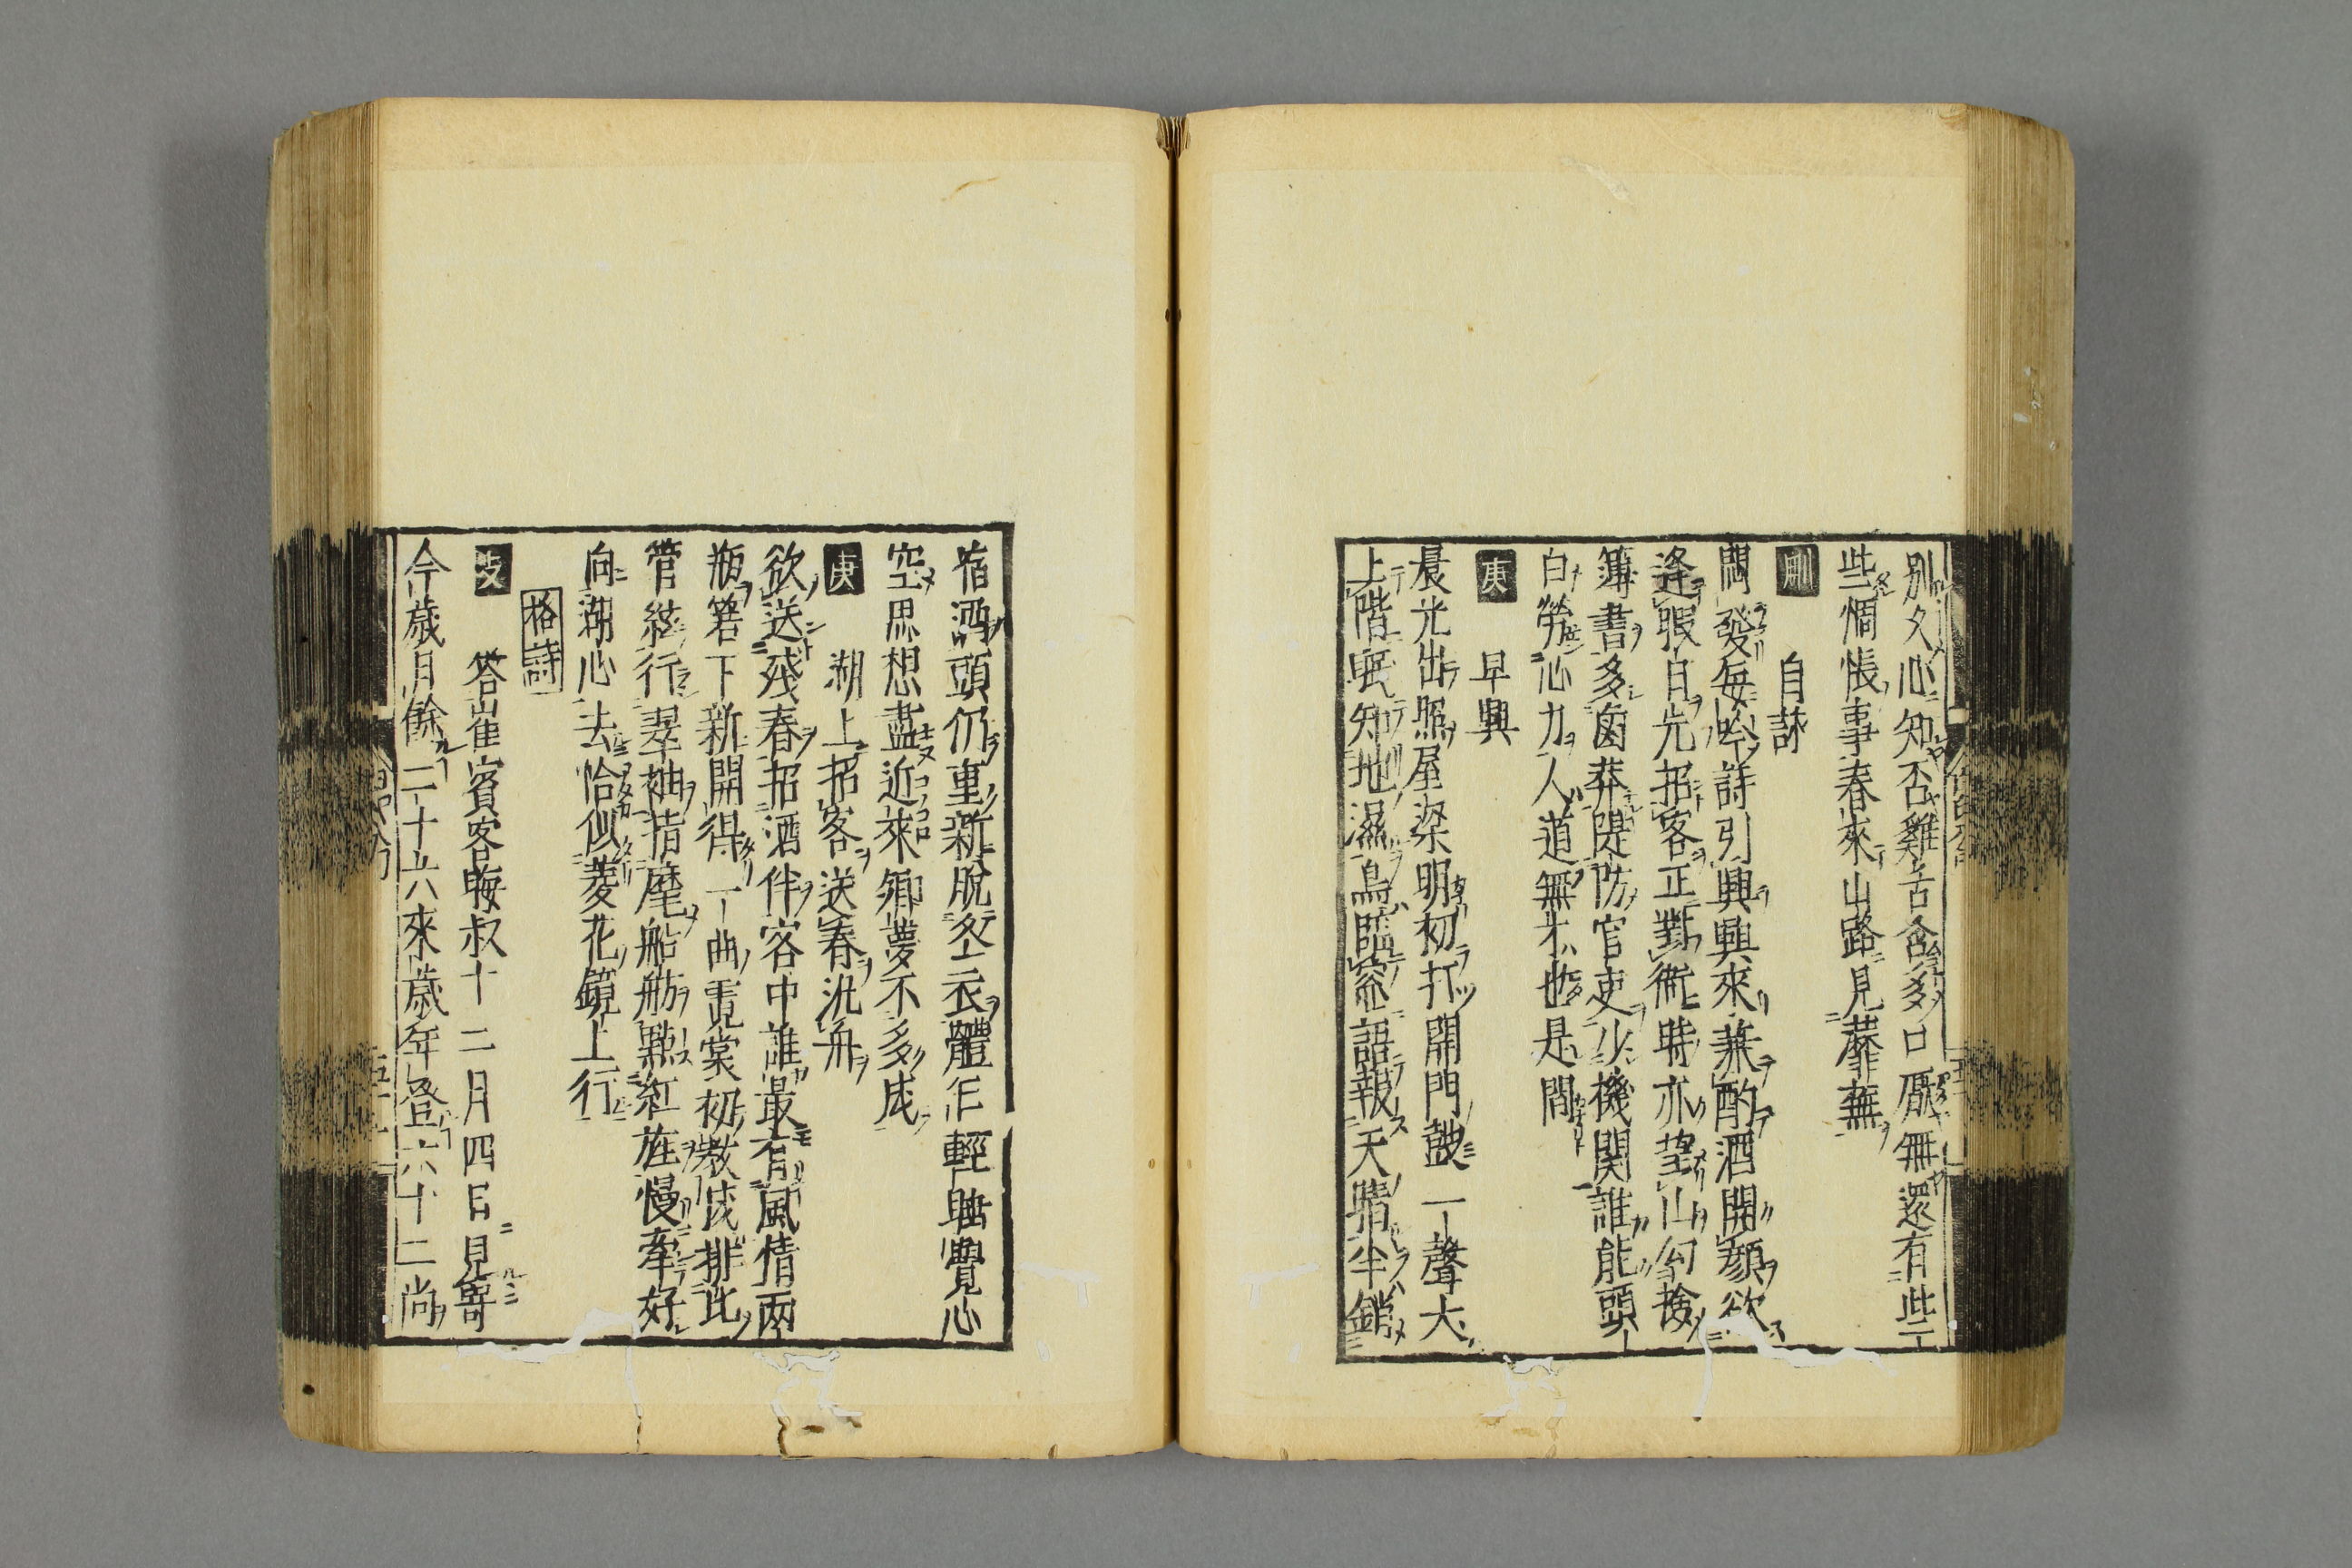 別久心知否雞舌含多口厭無還有些〻
些惆悵事春來山路見蘼蕪
刪
自詠
悶發每吟詩引興興來兼酌酒開顏欲
逢暇日先招客正對衙時亦望山勾撿
簿書多鹵莽隄防官吏少機関誰能頭
白勞心力人道無才也是閒
庚
早興
晨光出照屋梁明初打開門皷一聲犬
上階眠知地濕鳥臨窓語報天晴半銷
宿酒頭仍重新脫冬衣體乍輕睡覺心
空思想盡近來鄉夢不多成
庚
湖上招客送春汎舟
欲送残春招酒伴客中誰最有風情兩
瓶箬下新開得一曲霓裳初教成排比
管絃行翠袖指麾船舫點紅旌慢牽好
向湖心去恰似菱花鏡上行
格詩
支
答崔賓客晦叔十二月四日見寄
今歲日餘二十六來歲年登六十二尚